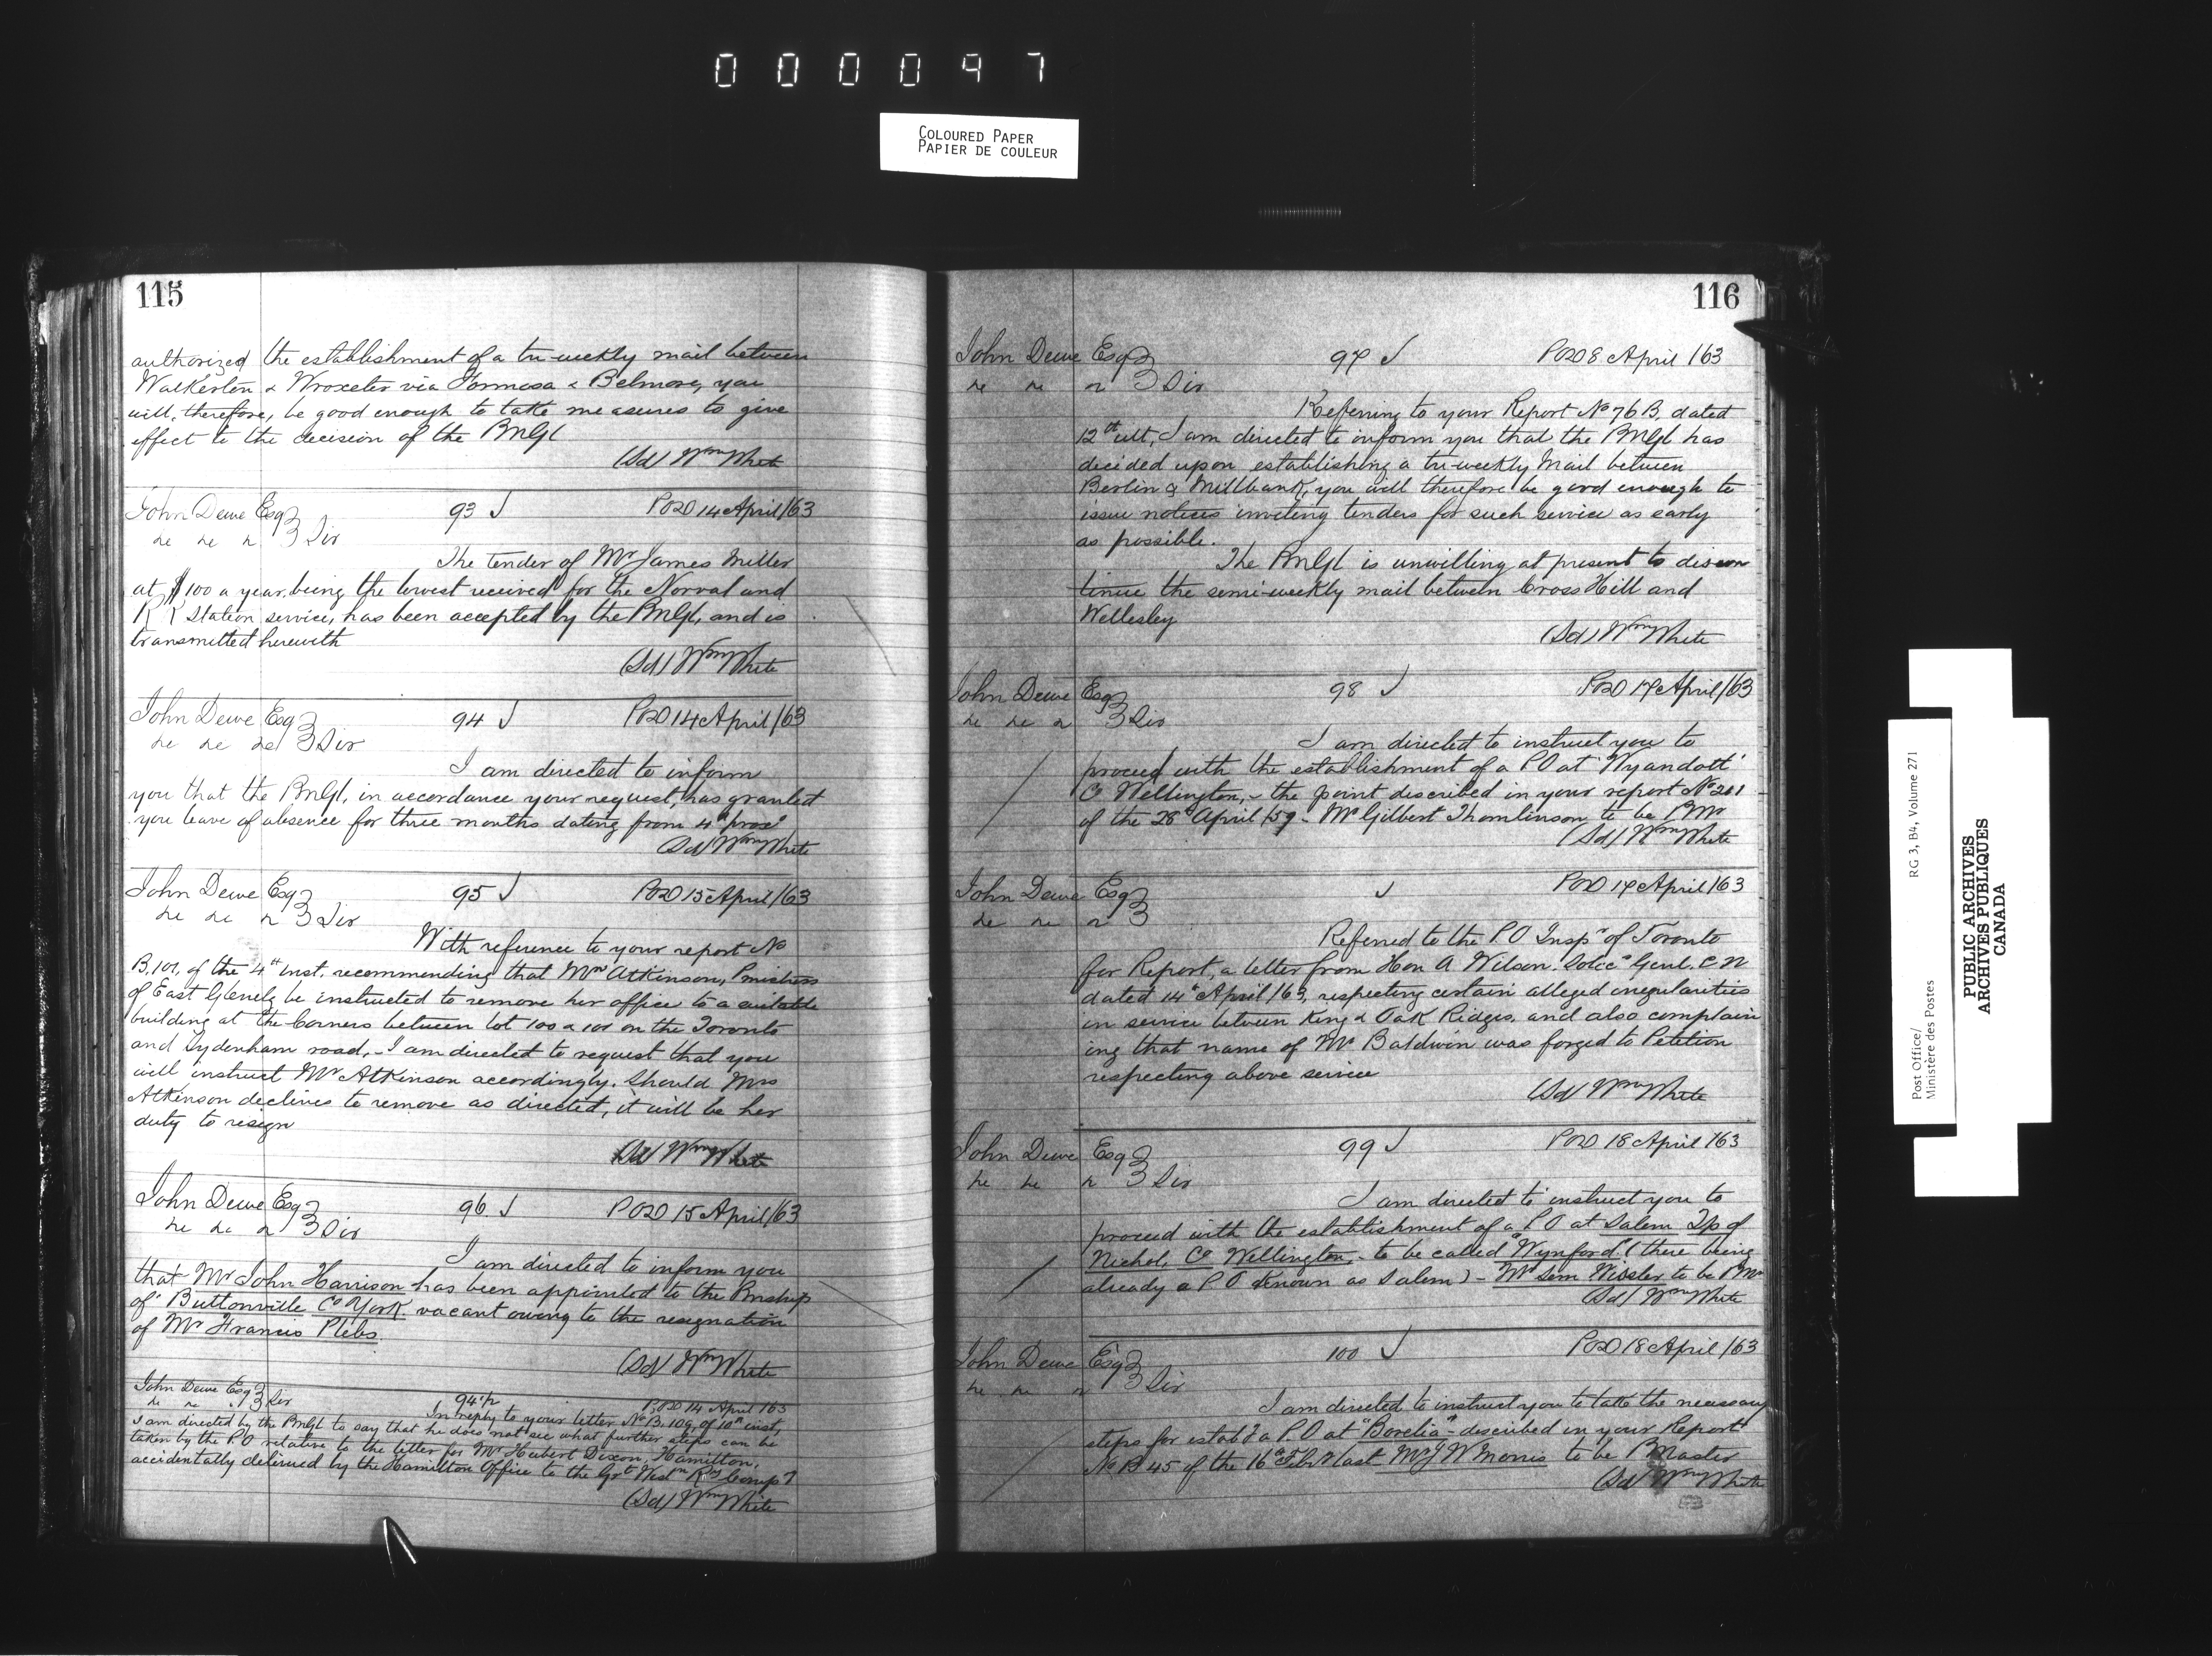 000097
COLOURED PAPER
PAPIER DE COULEUR
115
authorized the establishment of a tri-weekly mail between
Walkerton & Wroxeter via Formosa & Belmore, you
will, therefore, be good enough to take measures to give
effect to the decision of the PMGl
(Sd) Wm White
John Dewe Esq 93 POD 14 April /63
Sir
The tender of Mr James Miller
at $100 a year, being the lowest received for the Norval and
R R Station service, has been accepted by the PMGl, and is
transmitted herewith
(Sd) Wm White
John Dewe Esq 94 POD 14 April /63
Sir
I am directed to inform
you that the PMGl, in accordance your request, has granted
you leave of absence for three months dating from 4th proxo
(Sd) Wm White
John Dewe Esq 95 POD 15 April /63
Sir
With reference to your report No
B.101, of the 4th inst. recommending that Mrs Atkinson, Pmistress
of East Glenelg be instructed to remove her office to a suitable
building at the Corners between lot 100 & 101 on the Toronto
and Sydenham road, - I am directed to request that you
will instruct Mrs Atkinson accordingly. Should Mrs
Atkinson declines to remove as directed, it will be her
duty to resign
(Sd) Wm White
John Dewe Esq 96 POD 15 April /63
Sir
I am directed to inform you
that Mr John Harrison has been appointed to the Pmship
of Buttonville Co York vacant owing to the resignation
of Mr Francis Plebs.
(Sd) Wm White
John Dewe Esq Sir 94 1/2 P.OD 14 April /63
In reply to your letter No B.109 of 10th inst,
I am directed by the PMGl to say that he does not see what further steps can be
taken by the P.O relative to the letter for Mr Hubert Dixon, Hamilton,
accidentally delivered by the Hamilton Office to the Grt Westn Ry Compy
(Sd) Wm White
116
John Dewe Esq 97 POD 8 April /63
Sir
Referring to your Report No 76 B. dated
12th ult, I am directed to inform you that the PMGl has
decided upon establishing a tri-weekly Mail between
Berlin & Millbank, you will therefore be good enough to
issue notices inviting tenders for such service as early
as possible.
The PMGl is unwilling at present to discon
tinue the semi-weekly mail between Cross Hill and
Wellesley
(Sd) Wm White
John Dewe Esq 98 POD 17 April /63
Sir
I am directed to instruct you to
proceed with the establishment of a PO at 'Wyandott'
Co Wellington, - the point described in your report No 201
of the 28th April /59 - Mr Gilbert Thomlinson to be PMr
(Sd) Wm White
John Dewe Esq POD 17 April /63
Referred to the P.O Inspr of Toronto
for Report, a letter from Hon A Wilson. Solicr Genl. C W
dated 14th April /63, respecting certain alleged irregularities
in service between King & Oak Ridges, and also complain
ing that name of Mr Baldwin was forged to Petition
respecting above service
(Sd) Wm White
John Dewe Esq 99 POD 18 April /63
Sir
I am directed to instruct you to
proceed with the establishment of a P O at Salem Tp of
Nichol, Co Wellington, - to be called "Wynford" (there being
already a P O known as Salem) - Mr Sem Wissler to be PMr
(Sd) Wm White
John Dewe Esq 100 POD 18 April /63
Sir
I am directed to instruct you to take the necessary
steps for estabt a P.O at "Borelia" - described in your Report
No B 45 of the 16th Feby last Mr J W Morris to be PMaster
(Sd) Wm White
Post Office/ RG 3, B4, Volume 271
Ministère des Postes
PUBLIC ARCHIVES
ARCHIVES PUBLIQUES
CANADA